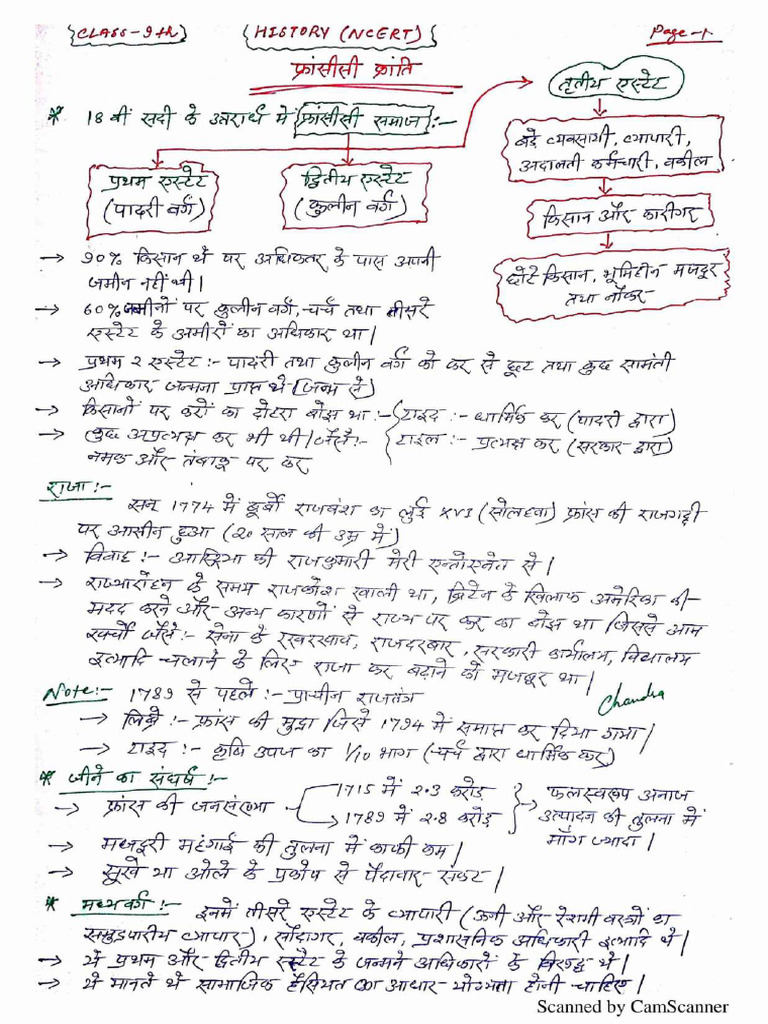 CLASS-9th
HISTORY (NCERT)
Page-1.
फ्रांसीसी क्रांति
* 18 वीं सदी के उत्तरार्ध में फ्रांसीसी समाज :-
प्रथम एस्टेट
(पादरी वर्ग)
द्वितीय एस्टेट
(कुलीन वर्ग)
तृतीय एस्टेट
बड़े व्यवसायी, व्यापारी,
अदालती कर्मचारी, वकील
किसान और कारीगर
छोटे किसान, भूमिहीन मजदूर
तथा नौकर
→ 90% किसान थे पर अधिकतर के पास अपनी
जमीन नहीं थी।
→ 60% जमीनों पर कुलीन वर्ग, चर्च तथा तीसरे
एस्टेट के अमीरों का अधिकार था।
→ प्रथम 2 एस्टेट :- पादरी तथा कुलीन वर्ग को कर से छूट तथा कुछ सामंती
अधिकार जन्मना प्राप्त थे (जन्म से)
→ किसानों पर करों का दोहरा बोझ था :- टाइद :- धार्मिक कर (पादरी द्वारा)
→ कुछ अप्रत्यक्ष कर भी थी। जैसे :- टाइल :- प्रत्यक्ष कर (सरकार द्वारा)
नमक और तंबाकू पर कर
राजा :-
सन् 1774 में बूर्बो राजवंश का लुई XVI (सोलहवां) फ्रांस की राजगद्दी
पर आसीन हुआ (20 साल की उम्र में)
→ विवाह :- आस्ट्रिया की राजकुमारी मेरी एन्तोएनेत से।
→ राज्यारोहन के समय राजकोश खाली था, ब्रिटेन के खिलाफ अमेरिका की
मदद करने और अन्य कारणों से राज्य पर कर का बोझ था जिससे आम
खर्चों जैसे :- सेना के रखरखाव, राजदरबार, सरकारी कार्यालय, विद्यालय
इत्यादि चलाने के लिए राजा कर बढ़ाने को मजबूर था।
Note :- 1789 से पहले :- प्राचीन राजतंत्र
Chandra
→ लिव्रे :- फ्रांस की मुद्रा जिसे 1794 में समाप्त कर दिया गया।
→ टाइद :- कृषि उपज का 1/10 भाग (चर्च द्वारा धार्मिक कर)
* जीने का संघर्ष :-
→ फ्रांस की जनसंख्या
1715 में 2.3 करोड़
1789 में 2.8 करोड़
फलस्वरूप अनाज
उत्पादन की तुलना में
माँग ज्यादा।
→ मजदूरी महंगाई की तुलना में काफी कम।
→ सूखे या ओले के प्रकोप से पैदावार - संकट।
* मध्यवर्ग :- इनमें तीसरे एस्टेट के व्यापारी (ऊनी और रेशमी वस्त्रों का
समुद्रपारीय व्यापार), सौदागर, वकील, प्रशासनिक अधिकारी इत्यादि थे।
→ ये प्रथम और द्वितीय एस्टेट के जन्मने अधिकारों के विरुद्ध थे।
→ ये मानते थे सामाजिक हैसियत का आधार - योग्यता होनी चाहिए।
Scanned by CamScanner